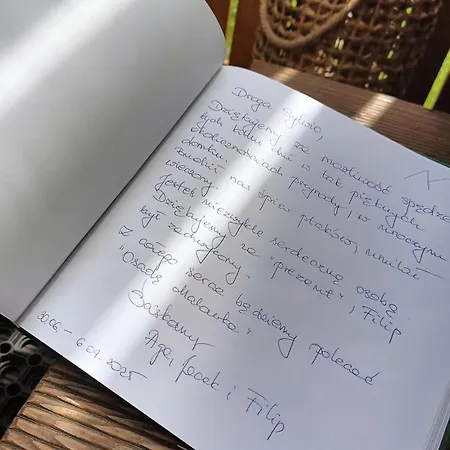 Droga Sylwio,
Dziękujemy za możliwość spędze
tych kilku dni w tak pięknych
okolicznościach przyrody, w uroczym
domku. nas śpiew ptaków, umilał
wieczory.
Jesteś niezwykle serdeczną osobą
Dziękujemy za "prezent", Filip
był zachwycony.
Z całego serca będziemy polecać
"Osadę Malanka".
Aga, Jacek i Filip